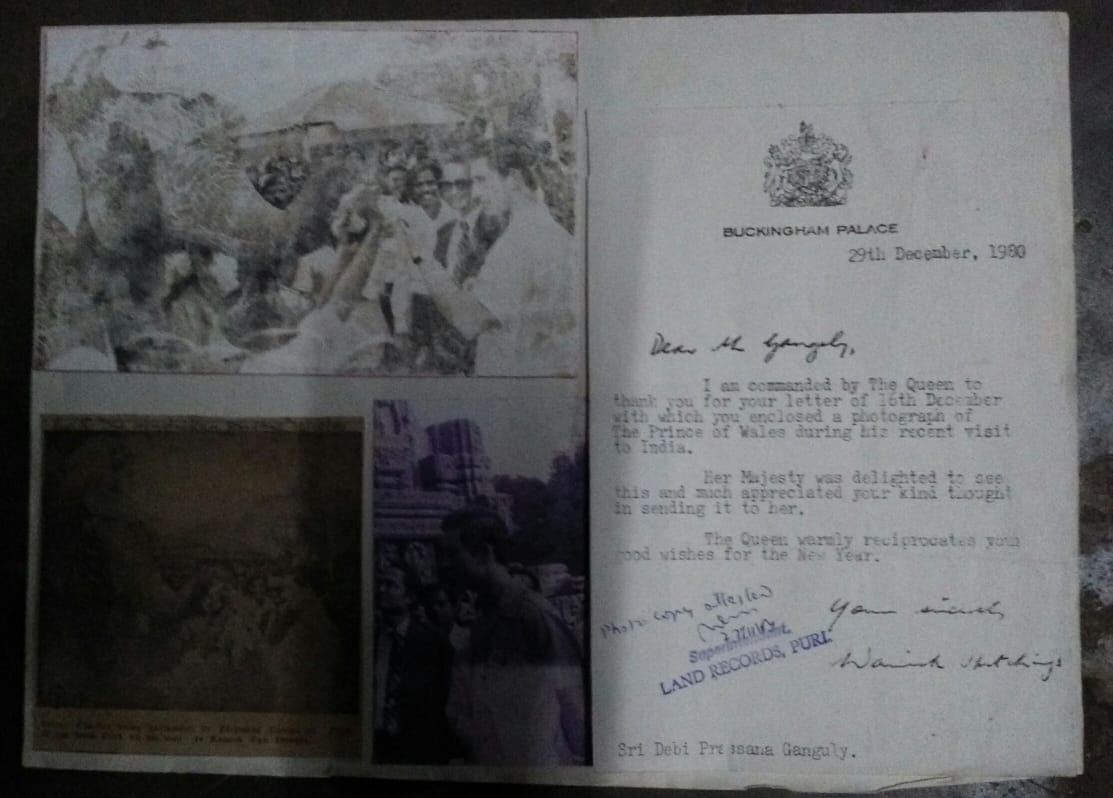 BUCKINGHAM PALACE
29th December, 1980
Dear Mr Ganguly,
I am commanded by The Queen to
thank you for your letter of 16th December
with which you enclosed a photograph of
The Prince of Wales during his recent visit
to India.
Her Majesty was delighted to see
this and much appreciated your kind thought
in sending it to her.
The Queen warmly reciprocates your
good wishes for the New Year.
Photo copy attested
Superintendent.
LAND RECORDS, PURI.
Yours sincerely,
Sri Debi Prassana Ganguly.